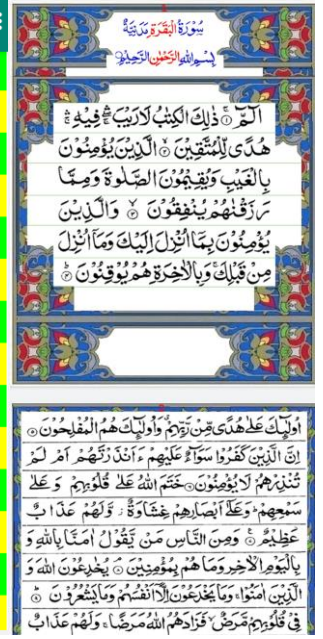 سُوْرَةُ الْبَقَرَةِ مَدَنِيَّةٌ
بِسْمِ اللّٰهِ الرَّحْمٰنِ الرَّحِيْمِ
الٓمّٓ ۝١ ذٰلِكَ الْكِتٰبُ لَا رَيْبَ ۛ فِيْهِ ۛ
هُدًى لِّلْمُتَّقِيْنَ ۝٢ الَّذِيْنَ يُؤْمِنُوْنَ
بِالْغَيْبِ وَيُقِيْمُوْنَ الصَّلٰوةَ وَمِمَّا
رَزَقْنٰهُمْ يُنْفِقُوْنَ ۝٣ وَالَّذِيْنَ
يُؤْمِنُوْنَ بِمَآ اُنْزِلَ اِلَيْكَ وَمَآ اُنْزِلَ
مِنْ قَبْلِكَ ۚ وَبِالْاٰخِرَةِ هُمْ يُوْقِنُوْنَ ۝٤
اُولٰٓئِكَ عَلٰى هُدًى مِّنْ رَّبِّهِمْ ۤ وَاُولٰٓئِكَ هُمُ الْمُفْلِحُوْنَ ۝٥
اِنَّ الَّذِيْنَ كَفَرُوْا سَوَآءٌ عَلَيْهِمْ ءَاَنْذَرْتَهُمْ اَمْ لَمْ
تُنْذِرْهُمْ لَا يُؤْمِنُوْنَ ۝ خَتَمَ اللّٰهُ عَلٰى قُلُوْبِهِمْ وَعَلٰى
سَمْعِهِمْ ؕ وَعَلٰٓى اَبْصَارِهِمْ غِشَاوَةٌ ؗ وَّلَهُمْ عَذَابٌ
عَظِيْمٌ ۝ وَمِنَ النَّاسِ مَنْ يَّقُوْلُ اٰمَنَّا بِاللّٰهِ وَ
بِالْيَوْمِ الْاٰخِرِ وَمَا هُمْ بِمُؤْمِنِيْنَ ۝ يُخٰدِعُوْنَ اللّٰهَ وَ
الَّذِيْنَ اٰمَنُوْا ۚ وَمَا يَخْدَعُوْنَ اِلَّآ اَنْفُسَهُمْ وَمَا يَشْعُرُوْنَ ۝
فِيْ قُلُوْبِهِمْ مَّرَضٌ ۙ فَزَادَهُمُ اللّٰهُ مَرَضًا ۚ وَلَهُمْ عَذَابٌ